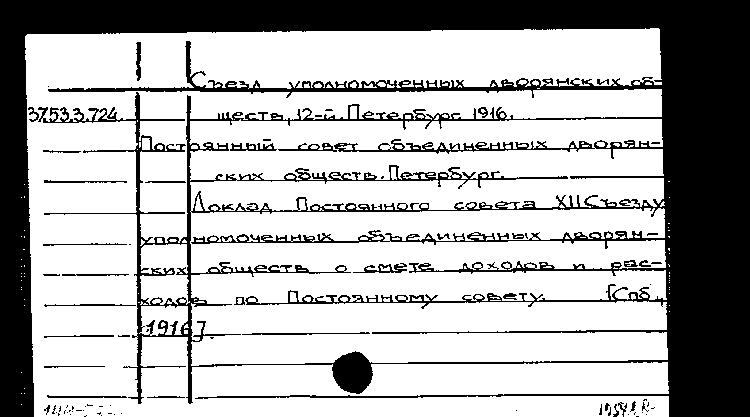 Съезд уполномоченных дворянских об-
37.53.3.724. ществ, 12-й. Петербург 1916.
Постоянный совет объединенных дворян-
ских обществ. Петербург.
Доклад Постоянного совета XII Съезду
уполномоченных объединенных дворян-
ских обществ о смете доходов и рас-
ходов по Постоянному совету. [Спб.,
1916].